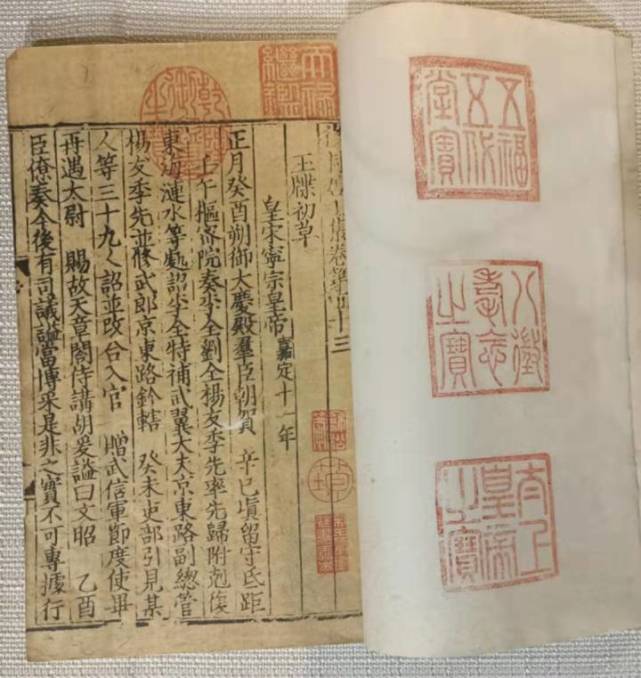 五福
五代
堂寶
八徵
耄念
之寶
太上
皇帝
之寶
天祿
繼鑑
乾隆
御覽
之寶
卷第四十三
玉牒初草
皇宋寧宗皇帝 嘉定十一年
正月癸酉朔御大慶殿羣臣朝賀 辛巳 留守 距
壬午樞密院奏李全劉全楊友季先率先歸附剋復
東海漣水等處詔李全特補武翼大夫京東路副總管
楊友季先並修武郎京東路鈐轄 癸未吏部引見某
人等三十九人詔並改合入官 贈武信軍節度使畢
再遇太尉 賜故天章閣侍講胡瑗謚曰文昭 乙酉
臣僚奏今後有司議謚當博采是非之實不可專據行